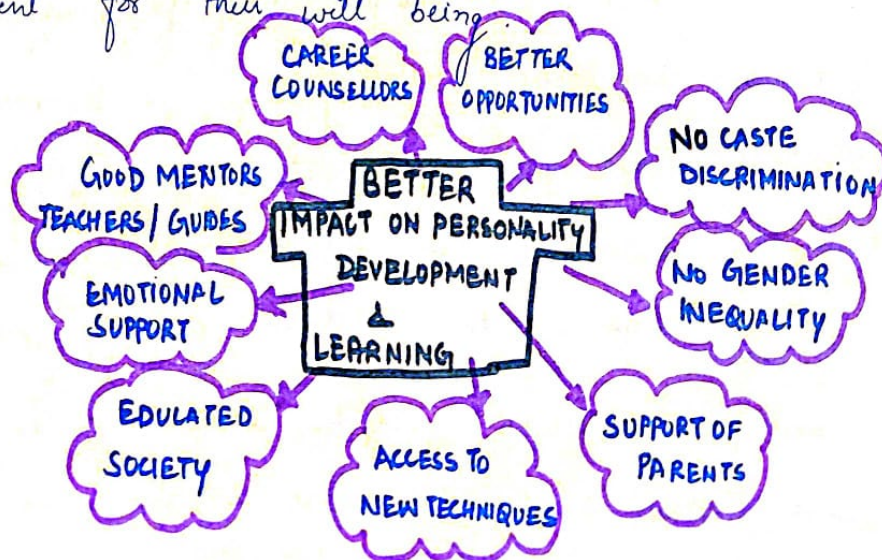 for their will being
CAREER
COUNSELLORS
BETTER
OPPORTUNITIES
NO CASTE
DISCRIMINATION
GOOD MENTORS
TEACHERS / GUIDES
BETTER
IMPACT ON PERSONALITY
DEVELOPMENT
&
LEARNING
NO GENDER
INEQUALITY
EMOTIONAL
SUPPORT
EDUCATED
SOCIETY
ACCESS TO
NEW TECHNIQUES
SUPPORT OF
PARENTS